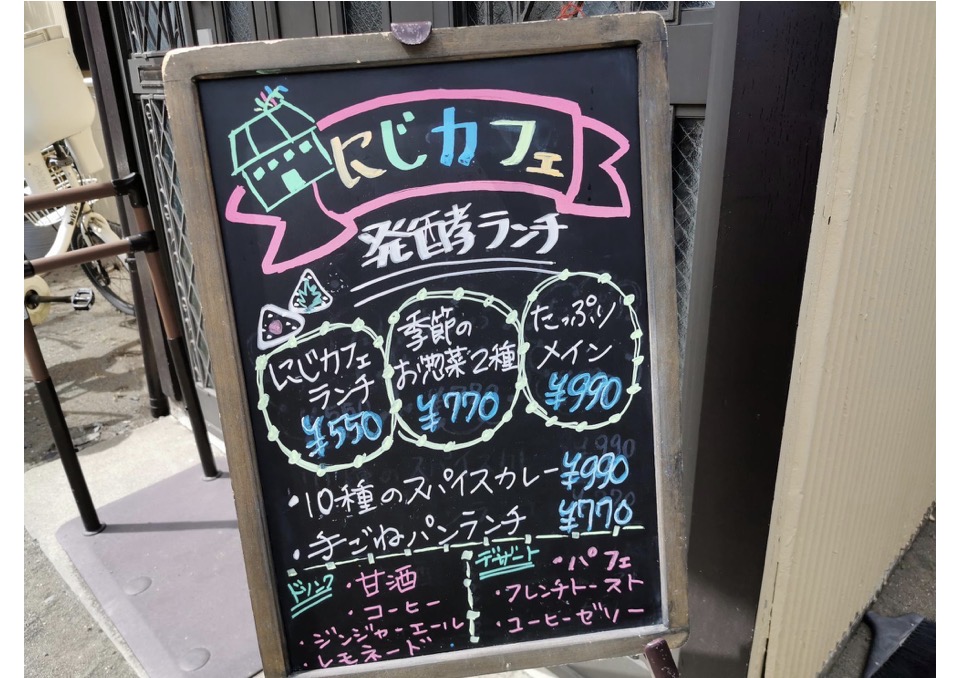 にじカフェ
発酵ランチ
にじカフェ
ランチ
¥550
季節の
お惣菜2種
¥770
たっぷり
メイン
¥990
・10種のスパイスカレー ¥990
・手ごねパンランチ ¥770
ドリンク
・甘酒
・コーヒー
・ジンジャーエール
・レモネード
デザート
・パフェ
・フレンチトースト
・コーヒーゼリー